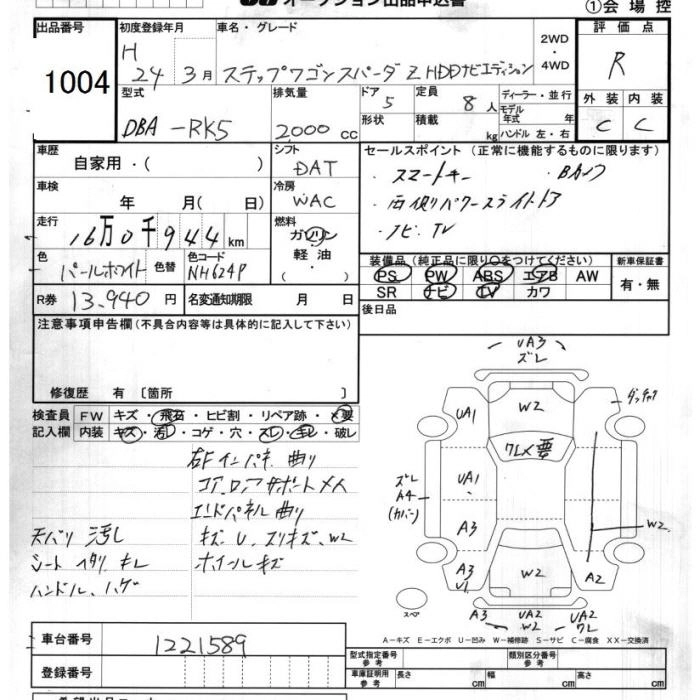 オークション出品申込書
①会場控
出品番号
1004
初度登録年月
H
24 3月
車名・グレード
ステップワゴンスパーダ Z HDDナビエディション
2WD
・
4WD
評価点
R
外装 内装
C C
型式
DBA-RK5
排気量
2,000 cc
ドア 5
形状
定員 8 人
積載 kg
ディーラー・並行
モデル
年式 年
ハンドル 左・右
車歴
自家用・( )
シフト
DAT
車検
年 月( 日)
冷房
WAC
走行
16万0千944 km
燃料
ガソリン
軽油
・
( )
色
パールホワイト
色替
色コード
NH624P
R券 13,940 円
名変通知期限 月 日
セールスポイント (正常に機能するものに限ります)
・スマートキー ・Bカメラ
・両側パワースライドドア
・ナビ TV
装備品 (純正品に限り○をつけてください)
PS PW ABS エアB AW
SR ナビ TV カワ
新車保証書
有・無
後日品
注意事項申告欄 (不具合内容等は具体的に記入して下さい)
修復歴 有 〔箇所 〕
検査員
記入欄
FW キズ・飛石・ヒビ割・リペア跡・×要
内装 キズ・汚レ・コゲ・穴・スレ・キレ・破レ
右Fインパネ 曲り
コア、ロアサポートメメ
エンドパネル 曲り
キズ U、スリキズ、W2
ホイールキズ
天バリ 汚し
シート ヘタリ キレ
ハンドル、ハゲ
UA3
ズレ
UA1
W2
ダッチャク
ワレ×要
ズレ
A4
(カバー)
UA1
A3
W2
A3
U1
W2
A2
スペア
A3
UA2
W2
UA2
ワレ
A-キズ E-エクボ U-凹み W-補修跡 S-サビ C-腐食 XX-交換済
車台番号
1221589
登録番号
型式指定番号
参考
類別区分番号
参考
車庫証明用
参考
長さ cm
幅 cm
高さ cm